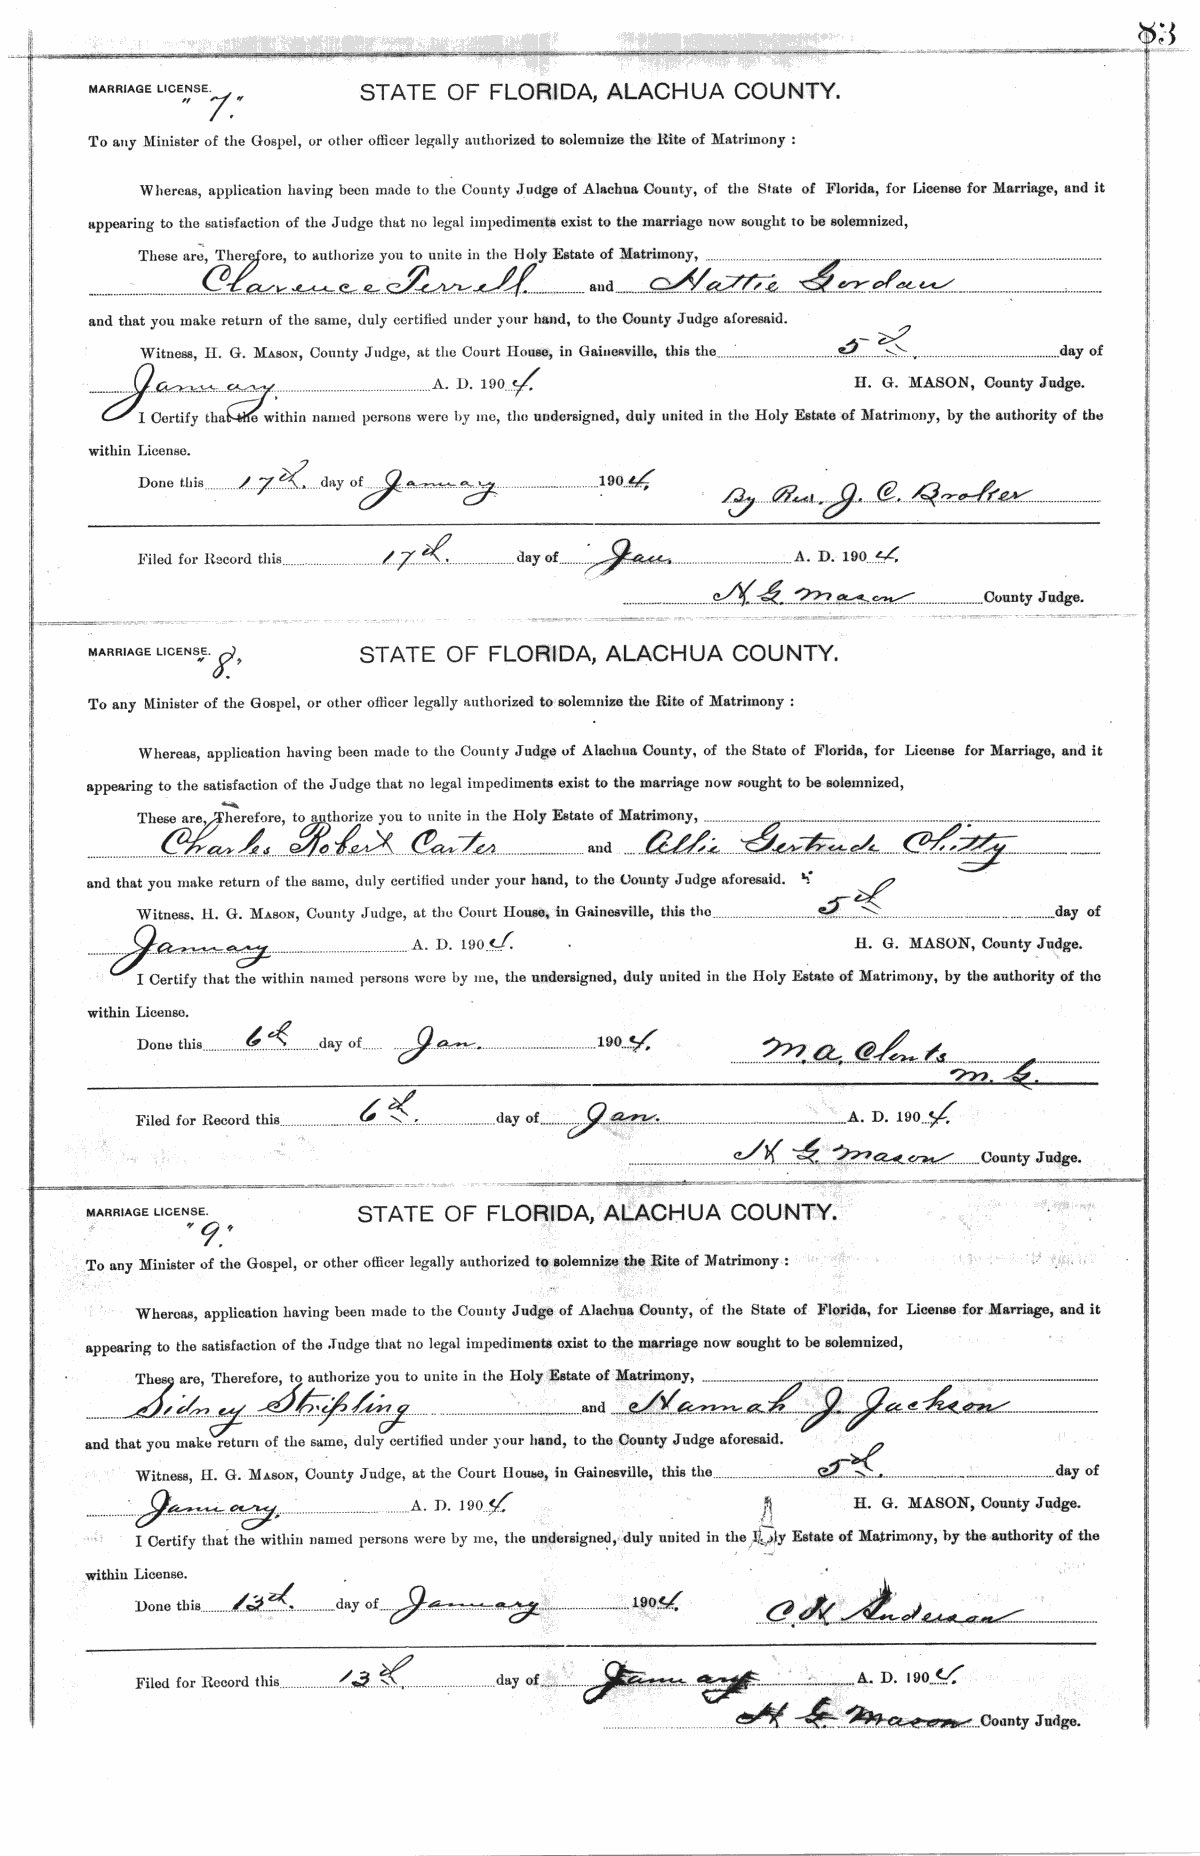 83
MARRIAGE LICENSE. STATE OF FLORIDA, ALACHUA COUNTY.
"7."
To any Minister of the Gospel, or other officer legally authorized to solemnize the Rite of Matrimony :
Whereas, application having been made to the County Judge of Alachua County, of the State of Florida, for License for Marriage, and it
appearing to the satisfaction of the Judge that no legal impediments exist to the marriage now sought to be solemnized,
These are, Therefore, to authorize you to unite in the Holy Estate of Matrimony,
Clarence Terrell and Hattie Gordan
and that you make return of the same, duly certified under your hand, to the County Judge aforesaid.
Witness, H. G. MASON, County Judge, at the Court House, in Gainesville, this the 5th. day of
January. A. D. 1904. H. G. MASON, County Judge.
I Certify that the within named persons were by me, the undersigned, duly united in the Holy Estate of Matrimony, by the authority of the
within License.
Done this 17th. day of January 1904. By Rev. J. C. Broker
Filed for Record this 17th. day of Jan. A. D. 1904.
H. G. Mason County Judge.
MARRIAGE LICENSE. STATE OF FLORIDA, ALACHUA COUNTY.
"8."
To any Minister of the Gospel, or other officer legally authorized to solemnize the Rite of Matrimony :
Whereas, application having been made to the County Judge of Alachua County, of the State of Florida, for License for Marriage, and it
appearing to the satisfaction of the Judge that no legal impediments exist to the marriage now sought to be solemnized,
These are, Therefore, to authorize you to unite in the Holy Estate of Matrimony,
Charles Robert Carter and Allie Gertrude Chitty
and that you make return of the same, duly certified under your hand, to the County Judge aforesaid.
Witness, H. G. MASON, County Judge, at the Court House, in Gainesville, this the 5th day of
January A. D. 1904. H. G. MASON, County Judge.
I Certify that the within named persons were by me, the undersigned, duly united in the Holy Estate of Matrimony, by the authority of the
within License.
Done this 6th day of Jan. 1904. M. A. Clonts
M. G.
Filed for Record this 6th. day of Jan. A. D. 1904.
H G. Mason County Judge.
MARRIAGE LICENSE. STATE OF FLORIDA, ALACHUA COUNTY.
"9."
To any Minister of the Gospel, or other officer legally authorized to solemnize the Rite of Matrimony :
Whereas, application having been made to the County Judge of Alachua County, of the State of Florida, for License for Marriage, and it
appearing to the satisfaction of the Judge that no legal impediments exist to the marriage now sought to be solemnized,
These are, Therefore, to authorize you to unite in the Holy Estate of Matrimony,
Sidney Stripling and Hannah J. Jackson
and that you make return of the same, duly certified under your hand, to the County Judge aforesaid.
Witness, H. G. MASON, County Judge, at the Court House, in Gainesville, this the 5th. day of
January. A. D. 1904. H. G. MASON, County Judge.
I Certify that the within named persons were by me, the undersigned, duly united in the Holy Estate of Matrimony, by the authority of the
within License.
Done this 13th. day of January 1904. C. H. Anderson
Filed for Record this 13th. day of January A. D. 1904.
H G. Mason County Judge.